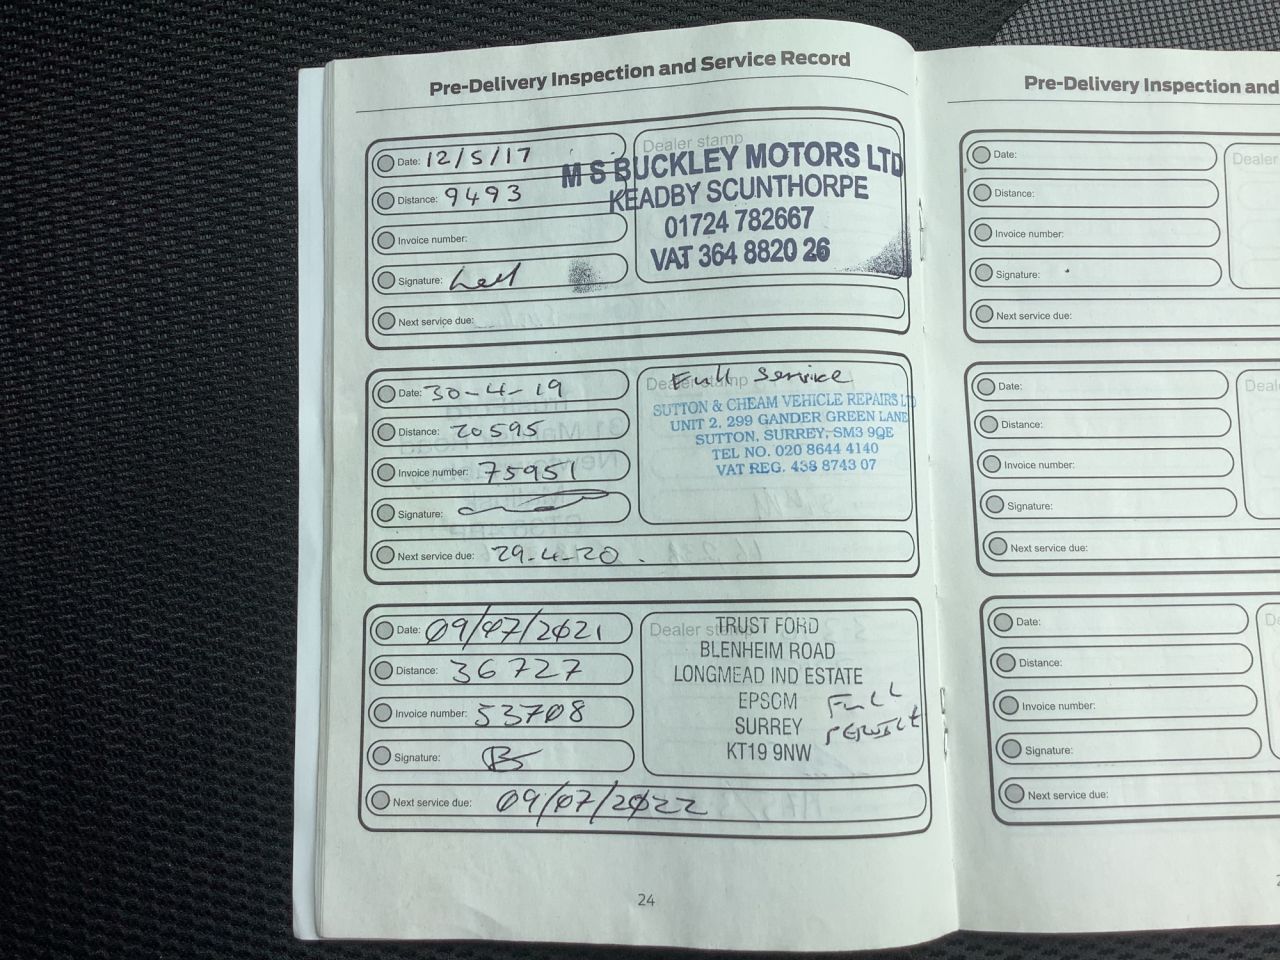 Pre-Delivery Inspection and Service Record
Date: 12/5/17
Distance: 9493
Invoice number:
Signature:
Next service due:
Dealer stamp
M S BUCKLEY MOTORS LTD
KEADBY SCUNTHORPE
01724 782667
VAT 364 8820 26
Date: 30-4-19
Distance: 20595
Invoice number: 75951
Signature:
Next service due: 29-4-20.
Dealer stamp
Full Service
SUTTON & CHEAM VEHICLE REPAIRS LTD
UNIT 2, 299 GANDER GREEN LANE
SUTTON, SURREY, SM3 9QE
TEL NO. 020 8644 4140
VAT REG. 438 8743 07
Date: 09/07/2021
Distance: 36727
Invoice number: 53708
Signature:
Next service due: 09/07/2022
Dealer stamp
TRUST FORD
BLENHEIM ROAD
LONGMEAD IND ESTATE
EPSOM
SURREY
KT19 9NW
FULL
SERVICE
24
Pre-Delivery Inspection and
Date:
Distance:
Invoice number:
Signature:
Next service due:
Dealer
Date:
Distance:
Invoice number:
Signature:
Next service due:
Deal
Date:
Distance:
Invoice number:
Signature:
Next service due:
De